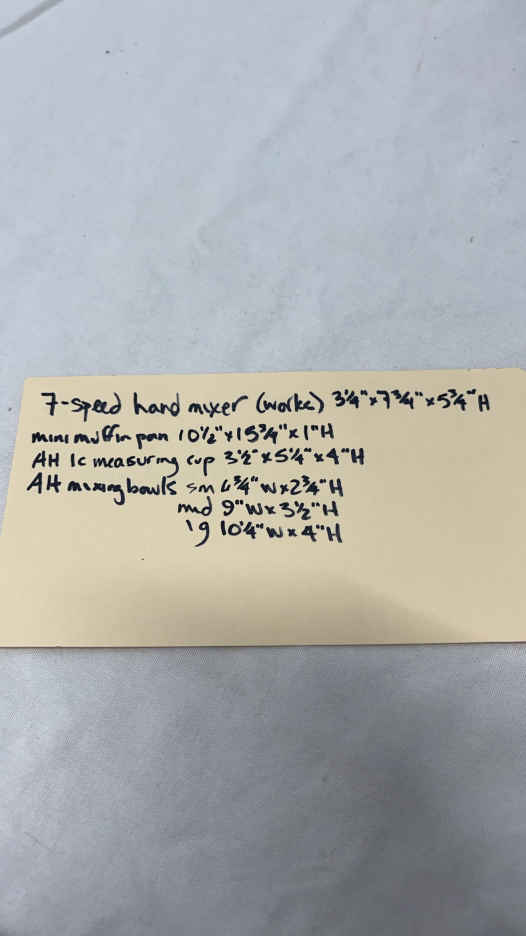 7-speed hand mixer (works) 3¼" x 7¾" x 5¾" H
mini muffin pan 10½" x 15¾" x 1" H
AH 1c measuring cup 3½" x 5¼" x 4" H
AH mixing bowls sm 6¾" W x 2¾" H
md 9" W x 3½" H
lg 10¼" W x 4" H